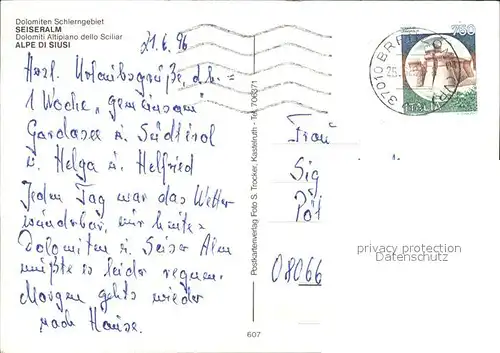 Dolomiten Schlerngebiet
SEISERALM
Dolomiti Altipiano dello Sciliar
ALPE DI SIUSI
21.6.96
Herzl. Urlaubsgrüße, d.h. =
1 Woche "gemeinsam"
Gardasee u. Südtirol
u. Helga u. Helfried
Jeden Tag war das Wetter
wunderbar, nur heute =
Dolomiten u. Seiser Alm
mußte es leider regnen.
Morgen gehts wieder
nach Hause.
Postkartenverlag Foto S. Trocker, Kastelruth - Tel. 706371
607
750
ITALIA
37010
Frau
Sig
Pöt
08066
privacy protection
Datenschutz